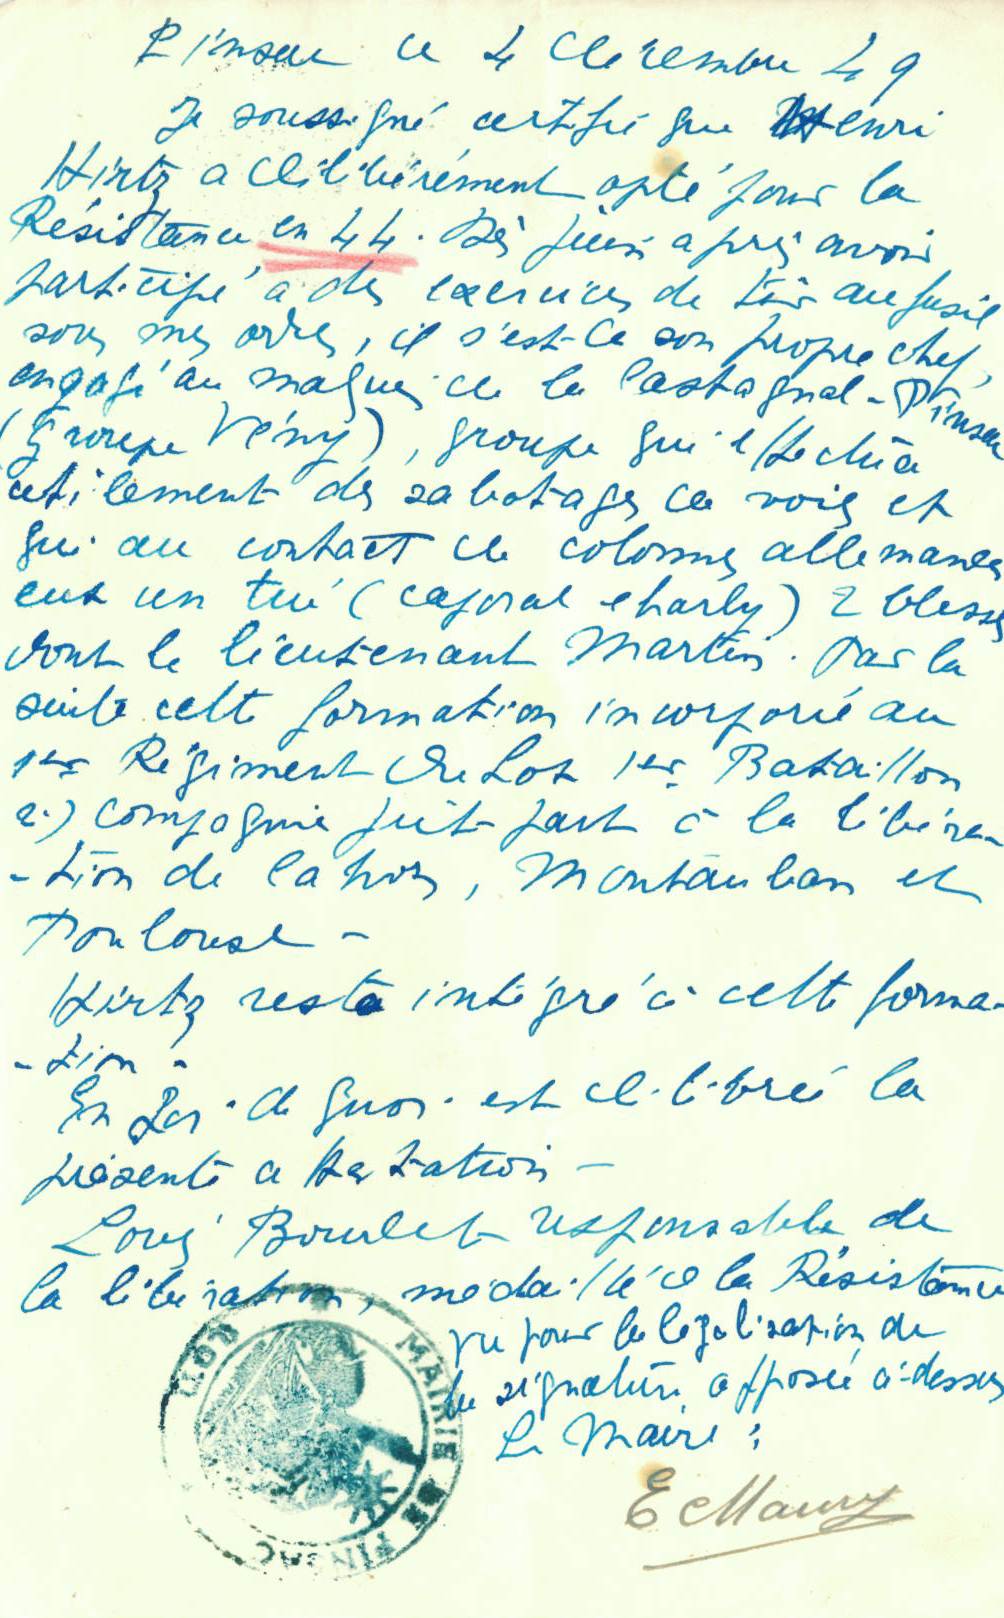 Pinsac ce 4 décembre 49
Je soussigné certifie que Henri
Hirtz a délibérément opté pour la
Résistance en 44. Dès juin après avoir
participé à des exercices de tir au fusil
sous mes ordres, il s'est de son propre chef,
engagé au maquis de la Castagnal - Pinsac
(Groupe Vény), groupe qui effectua
utilement des sabotages de voies et
qui au contact de colonnes allemandes
eut un tué (caporal Charly) 2 blessés
dont le lieutenant Martin. Par la
suite cette formation incorporée au
1er Régiment du Lot 1er Bataillon
2) compagnie prit part à la libéra-
-tion de Cahors, Montauban et
Toulouse -
Hirtz resta intégré à cette forma-
-tion.
En foi de quoi est délibrée la
présente attestation -
Louis Bourlet responsable de
la libération, médaillé de la Résistance
Vu pour la légalisation de
la signature apposée ci-dessus
Le Maire :
E Maury
MAIRIE DE PINSAC
(LOT)